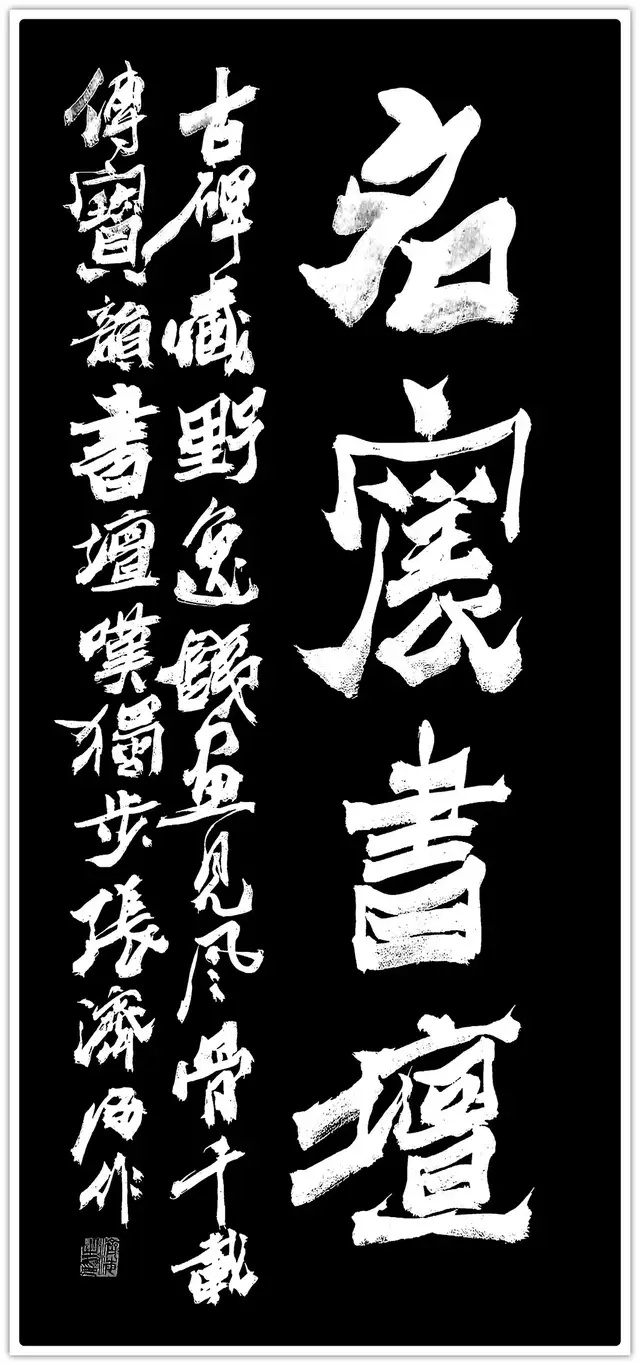 名震書壇
古碑藏野逸画見风骨千載
傳寶韻書壇嘆獨步張濟海作